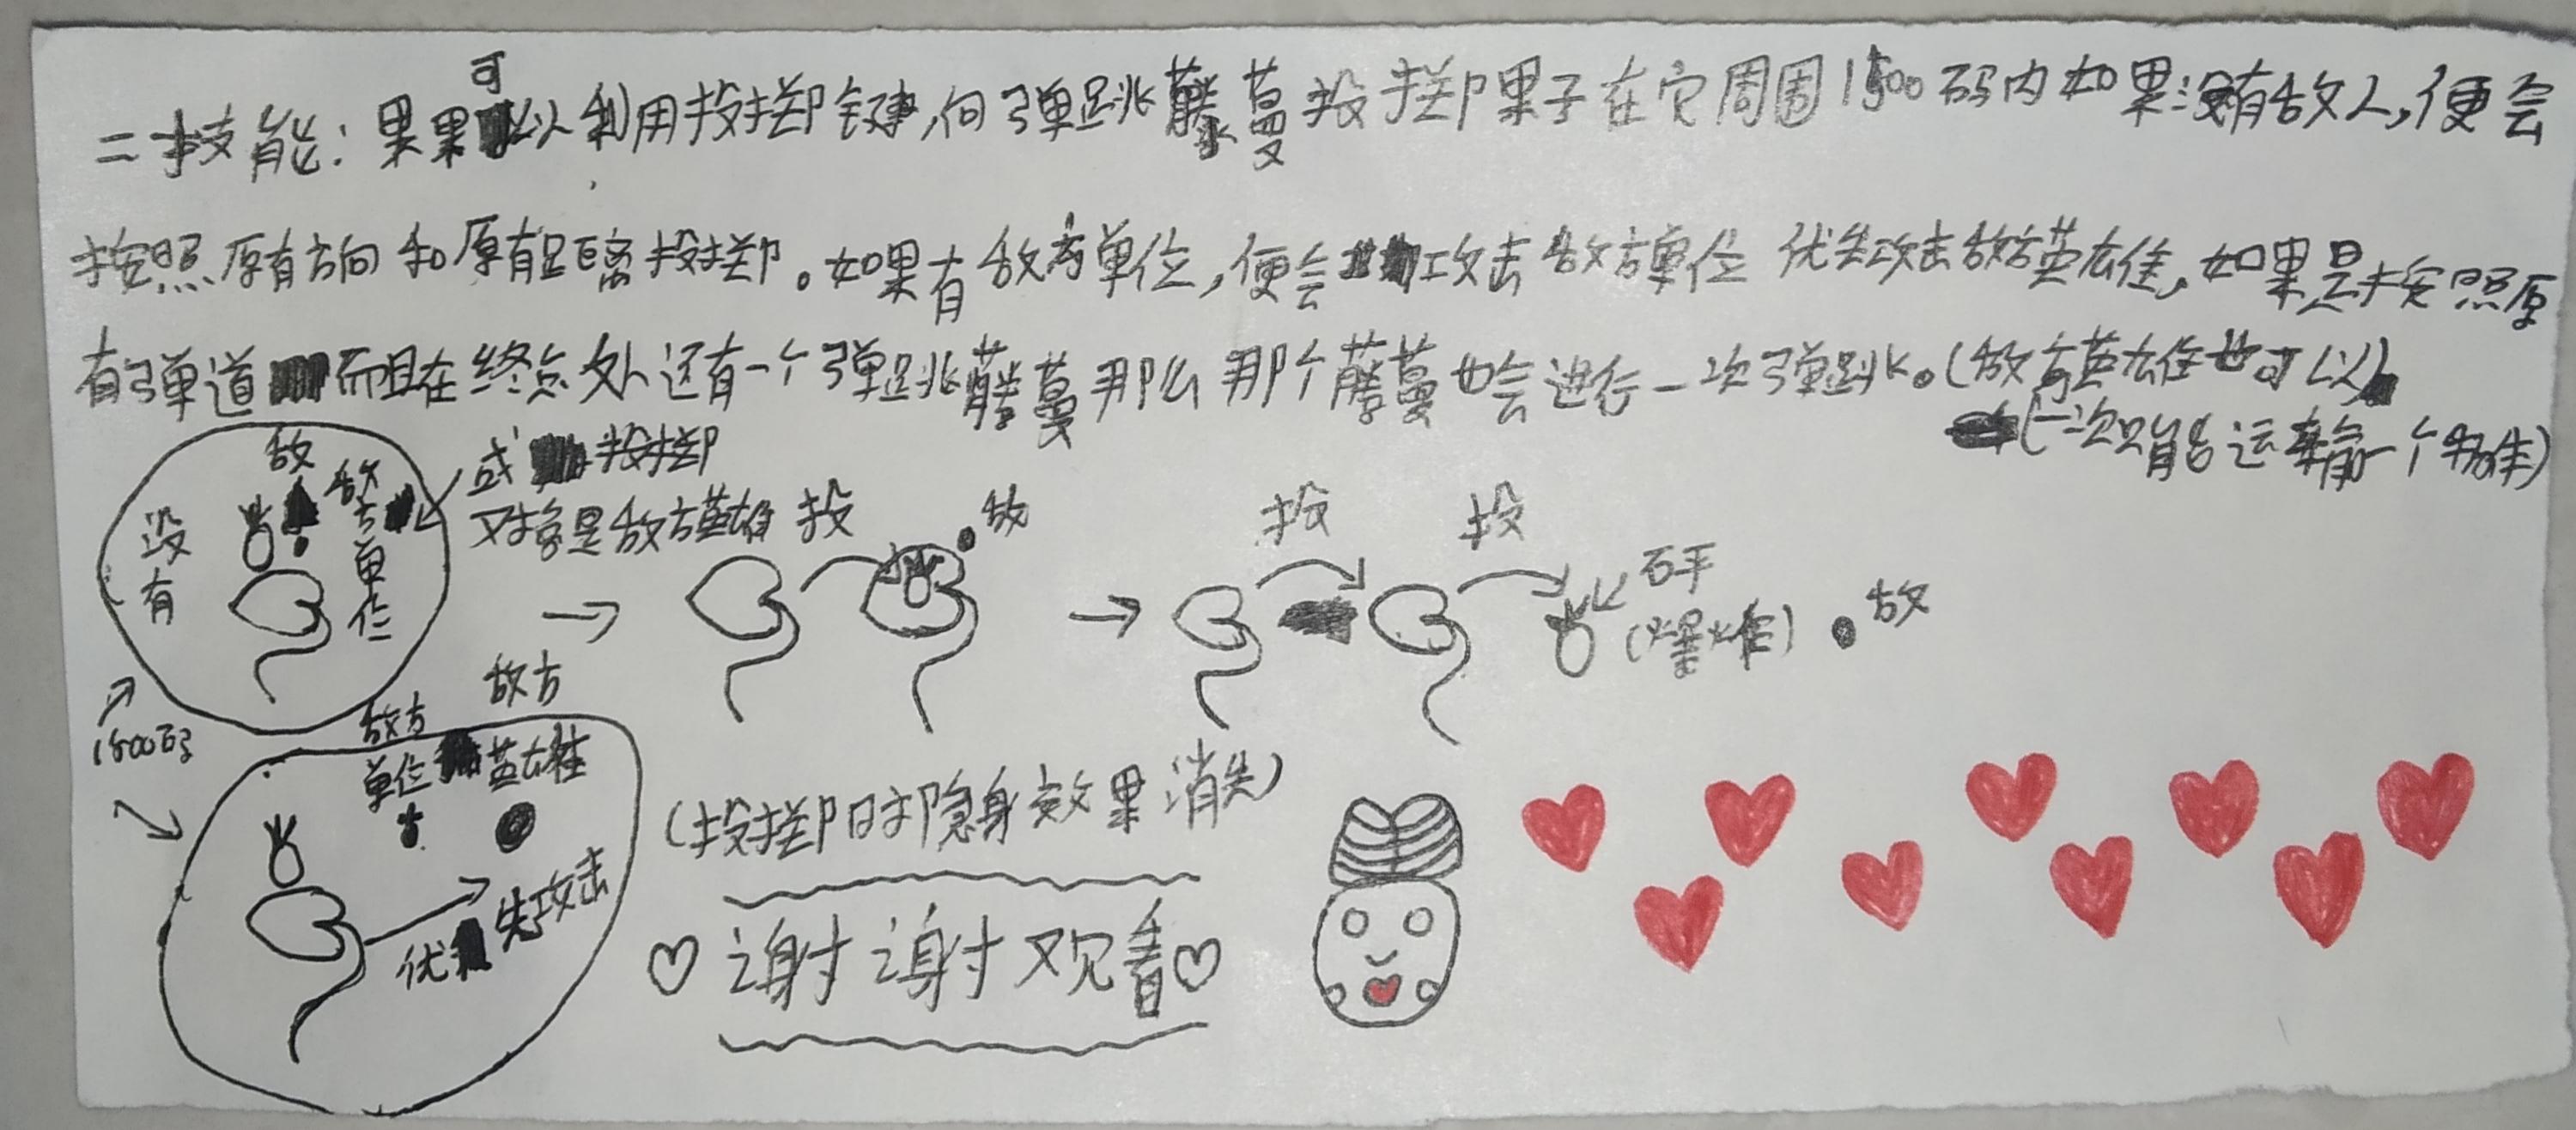 二技能：果果可以利用投掷键,向弹跳藤蔓投掷果子在它周围1500码内如果没有敌人,便会
按照原有方向和原有距离投掷。如果有敌方单位,便会攻击敌方单位 优先攻击敌方英雄,如果是按照原
有弹道而且在终点处还有一个弹跳藤蔓那么那个藤蔓也会进行一次弹跳。(敌方英雄也可以)
(一次只能运输一个物体)
没有
敌
敌方单位
或投掷
对象是敌方英雄
投
敌
投
投
(爆炸)
敌
1500码
敌方
单位
敌方
英雄
优先攻击
(投掷时隐身效果消失)
谢谢观看